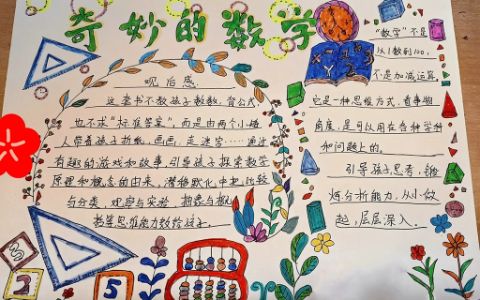 奇妙的数学
观后感
这套书不教孩子数数,背公式
也不求"标准答案",而是由两个小矮
人带着孩子折纸,画画,走迷宫……通过
有趣的游戏和故事,引导孩子探索数学
原理和概念的由来,潜移默化中把比较
与分类,观察与实验,抽象与概
教等思维能力教给孩子.
"数学"不是
从1数到100,
不是加减运算
它是一种思维方式,看事物
角度,是可以用在各种学科
和问题上的。
引导孩子思考,锻
炼分析能力,从小做
起,层层深入.
3
2
5